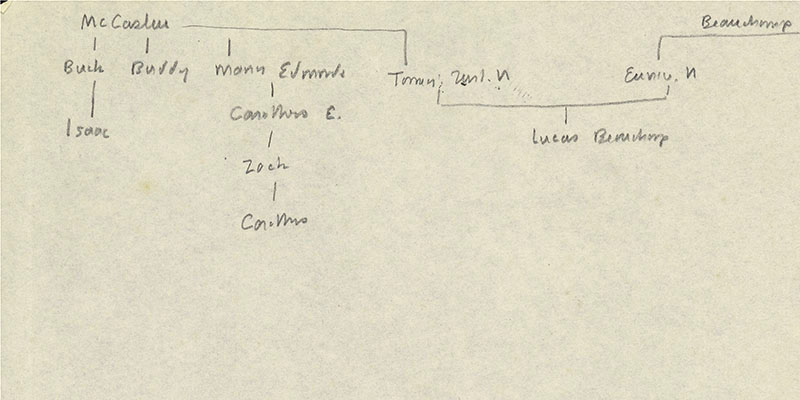 McCaslin
Beauchamp
Buck Buddy Mary Edmonds
Tomey's Turl. N
Eunice. N
Isaac
Carothers E.
Lucas Beauchamp
Zack
Carothers